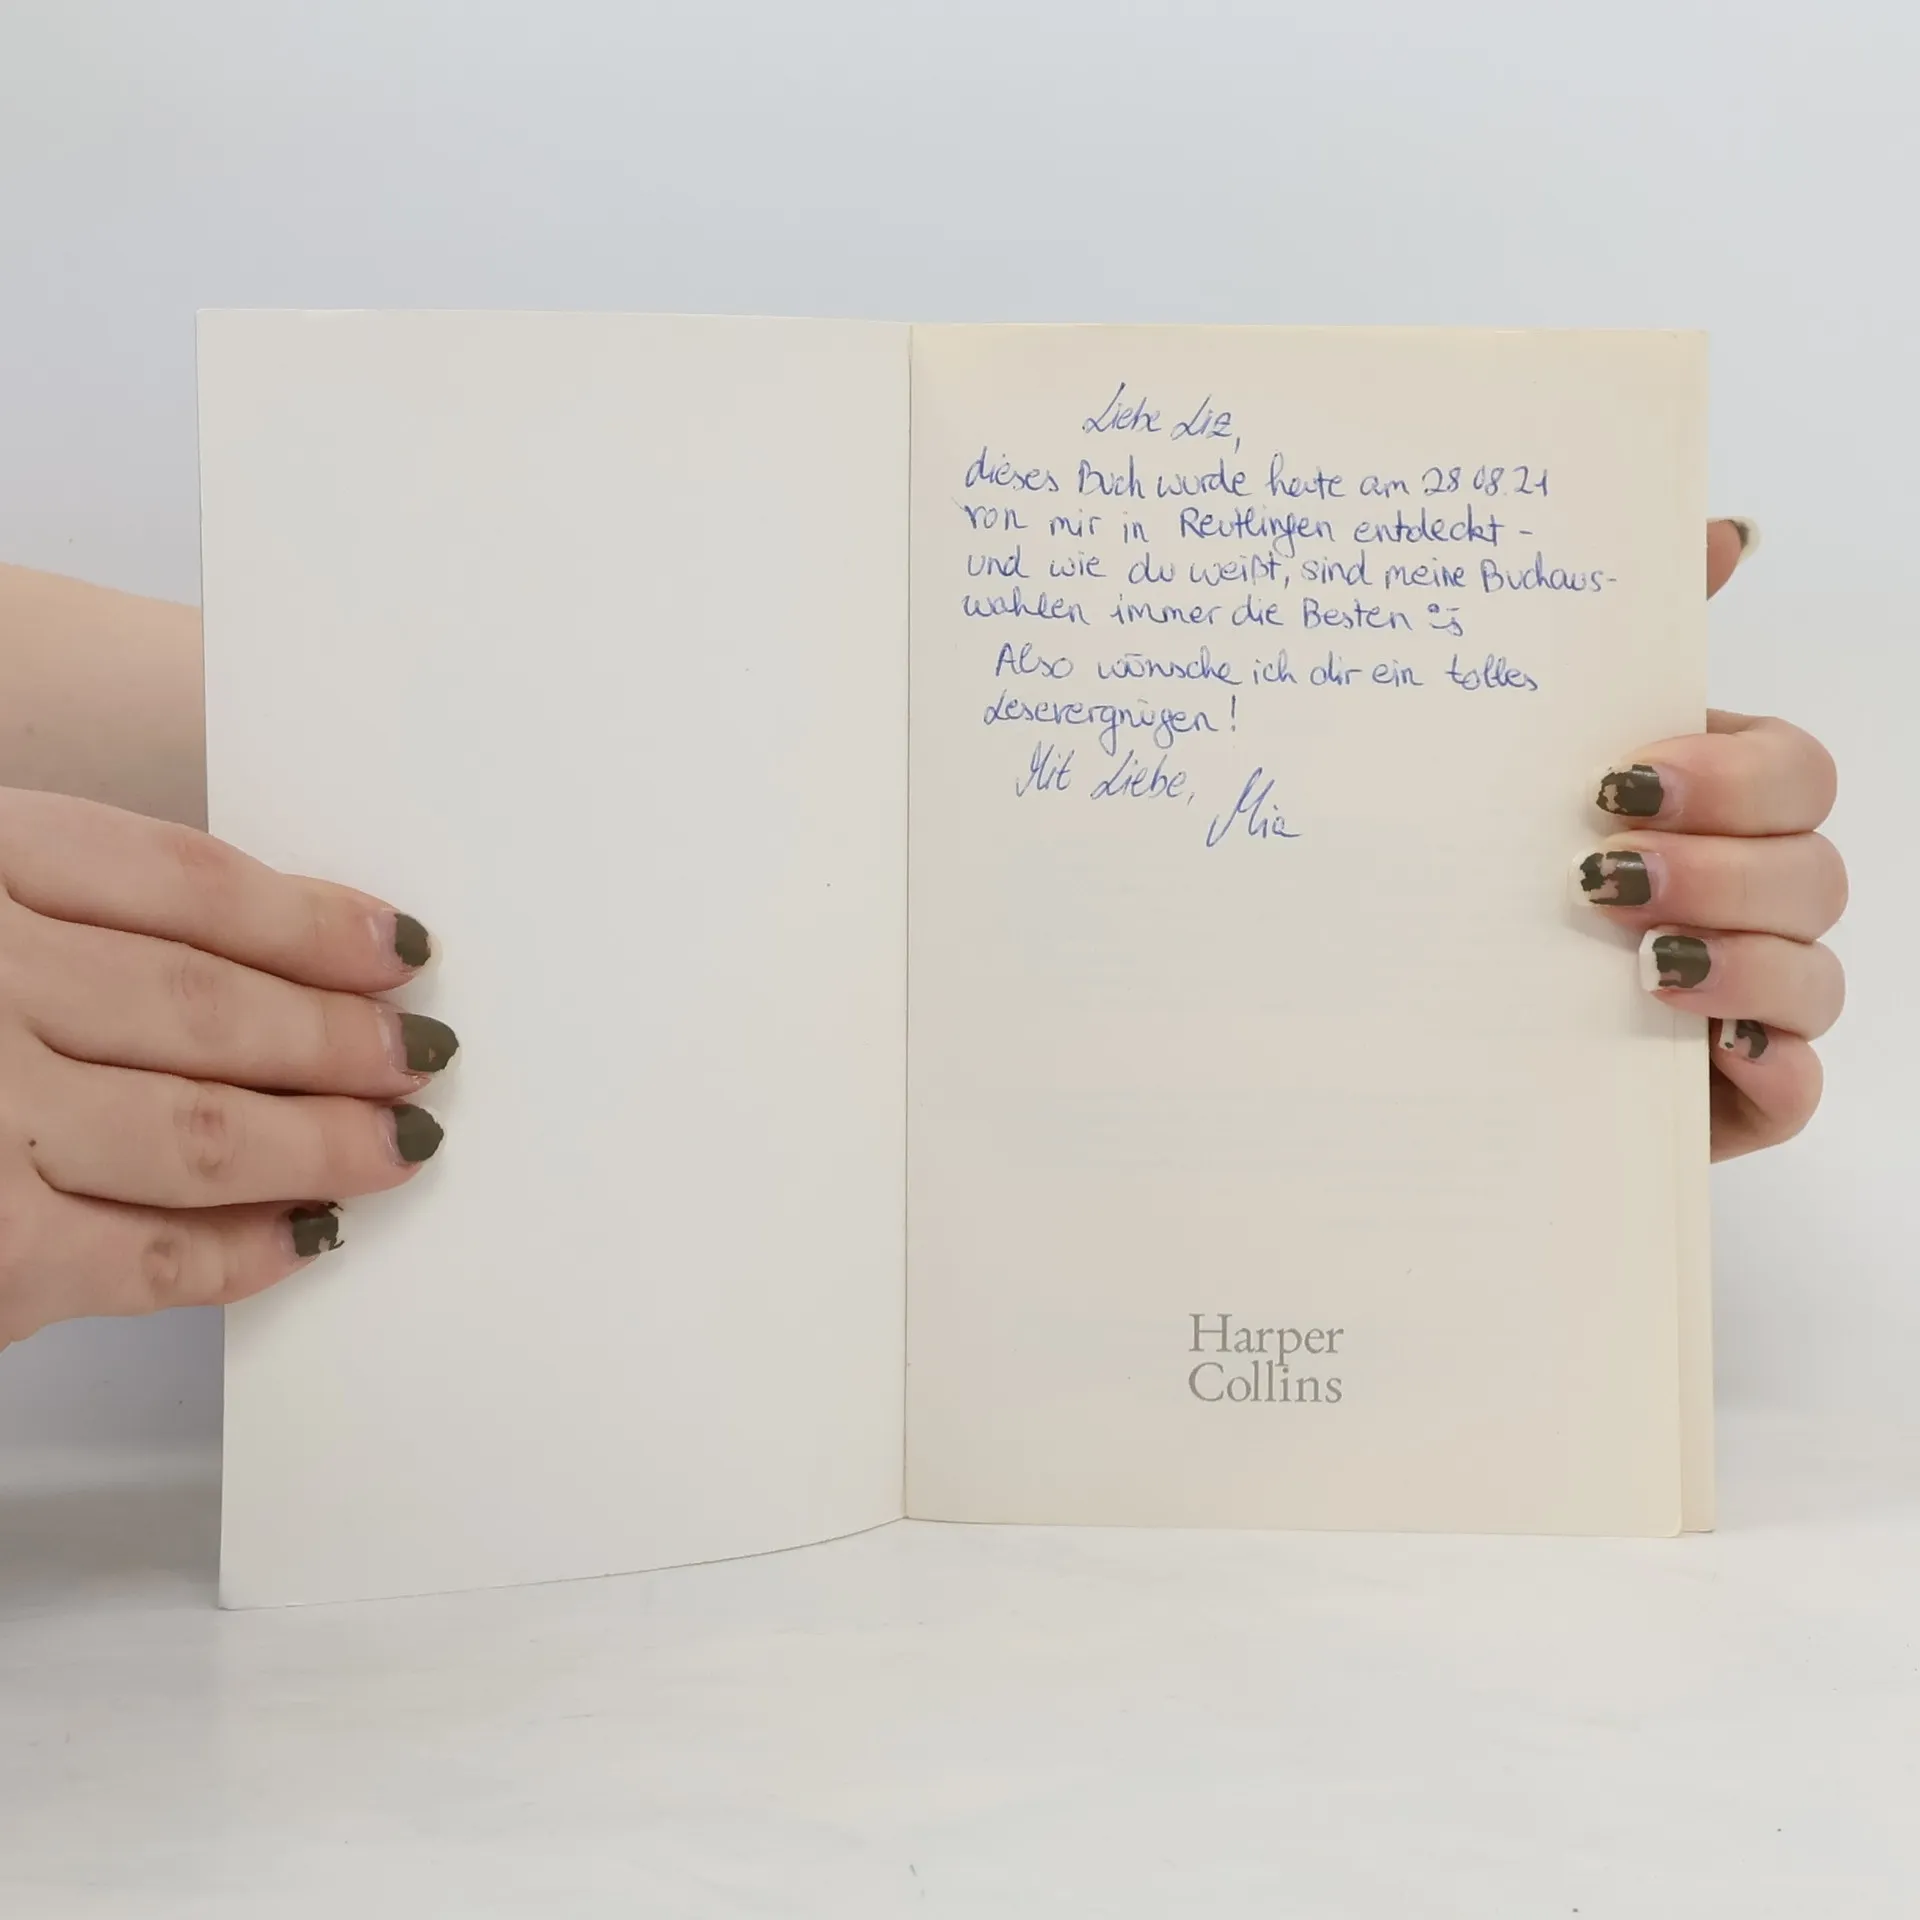 Liebe Liz,
dieses Buch wurde heute am 28.08.21
von mir in Reutlingen entdeckt -
und wie du weißt, sind meine Buchaus-
wahlen immer die Besten
Also wünsche ich dir ein tolles
Lesevergnügen!
Mit Liebe,
Mia
Harper
Collins